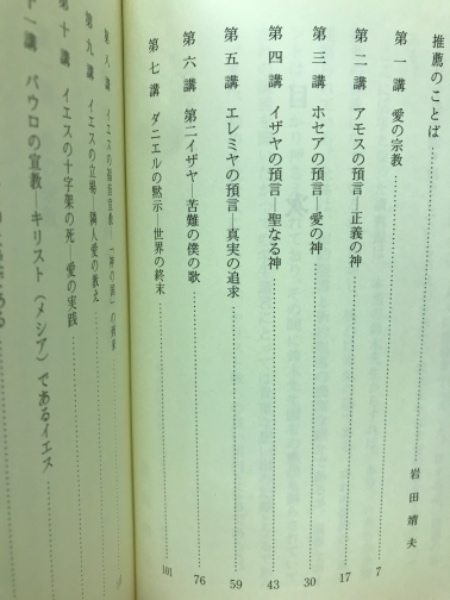 推薦のことば……岩田靖夫
第一講 愛の宗教……7
第二講 アモスの預言―正義の神……17
第三講 ホセアの預言―愛の神……30
第四講 イザヤの預言―聖なる神……43
第五講 エレミヤの預言―真実の追求……59
第六講 第二イザヤ―苦難の僕の歌……76
第七講 ダニエルの黙示―世界の終末……101
第八講 イエスの福音宣教―「神の国」の
第九講 イエスの立場 隣人愛の教え
第十講 イエスの十字架の死―愛の実践
十一講 パウロの宣教―キリスト(メシア)であるイエス